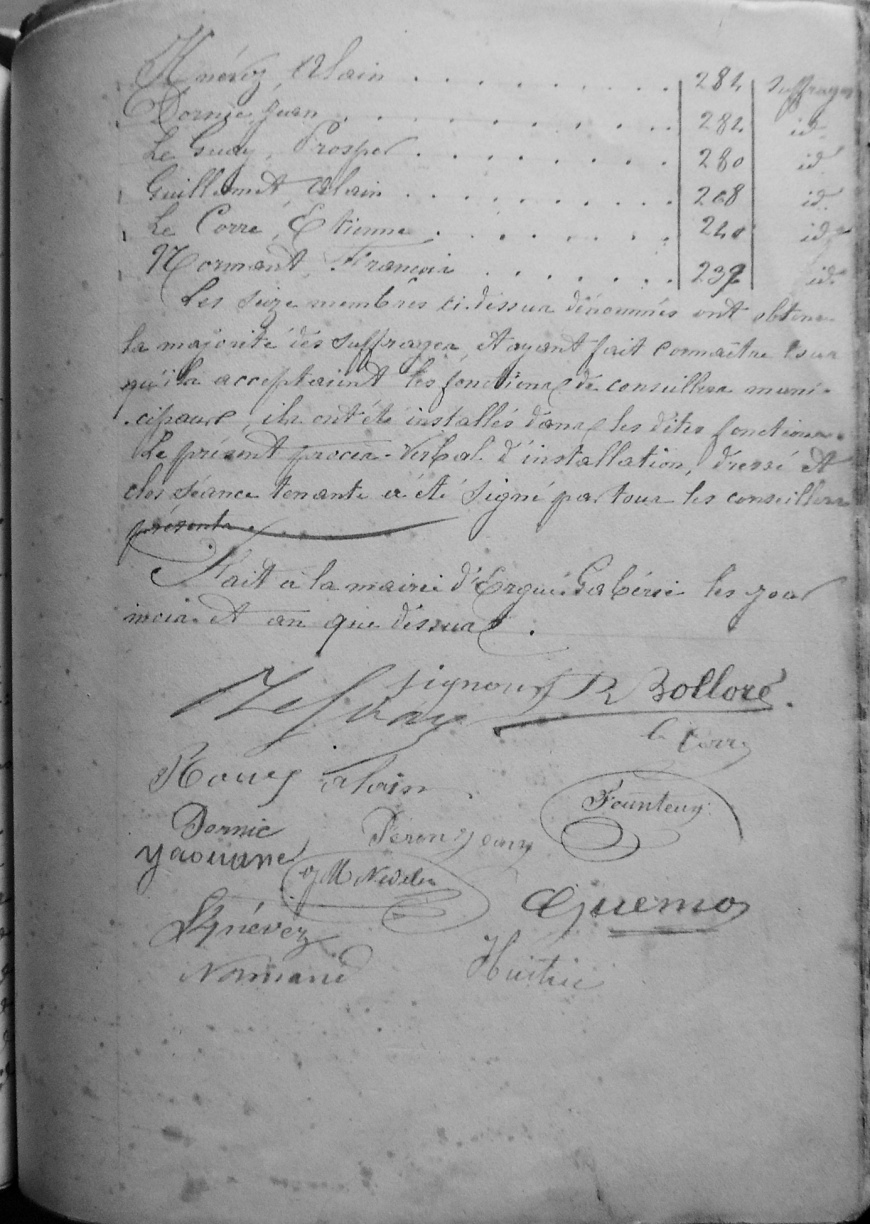 Knévez, Alain . . . . . . . . . 284 suffrages
Dornic, Jean . . . . . . . . . . 282 id.
Le Guay, Prosper . . . . . . . . 280 id.
Guillamet, Alain . . . . . . . . 268 id.
Le Corre, Etienne . . . . . . . 240 id.
Normant, François . . . . . . 232 id.
Les seize membres ci-dessus dénommés ont obtenu
la majorité des suffrages, et ayant fait connaître tous
qu'ils acceptaient les fonctions de conseillers muni-
-cipaux, ils ont été installés dans les dites fonctions.
Le présent procès-verbal d'installation, dressé et
clos séance tenante a été signé par tous les conseillers
présents.
Fait à la mairie d'Ergué-Gabéric les jour
mois et an que dessus.
Signour R Bolloré.
Le Guay
le Corre
Rouey alain
Founteun
Dornic Peron jean
yaouanc
J M Nédelec
Guemo
Knévez
Normand Huitric